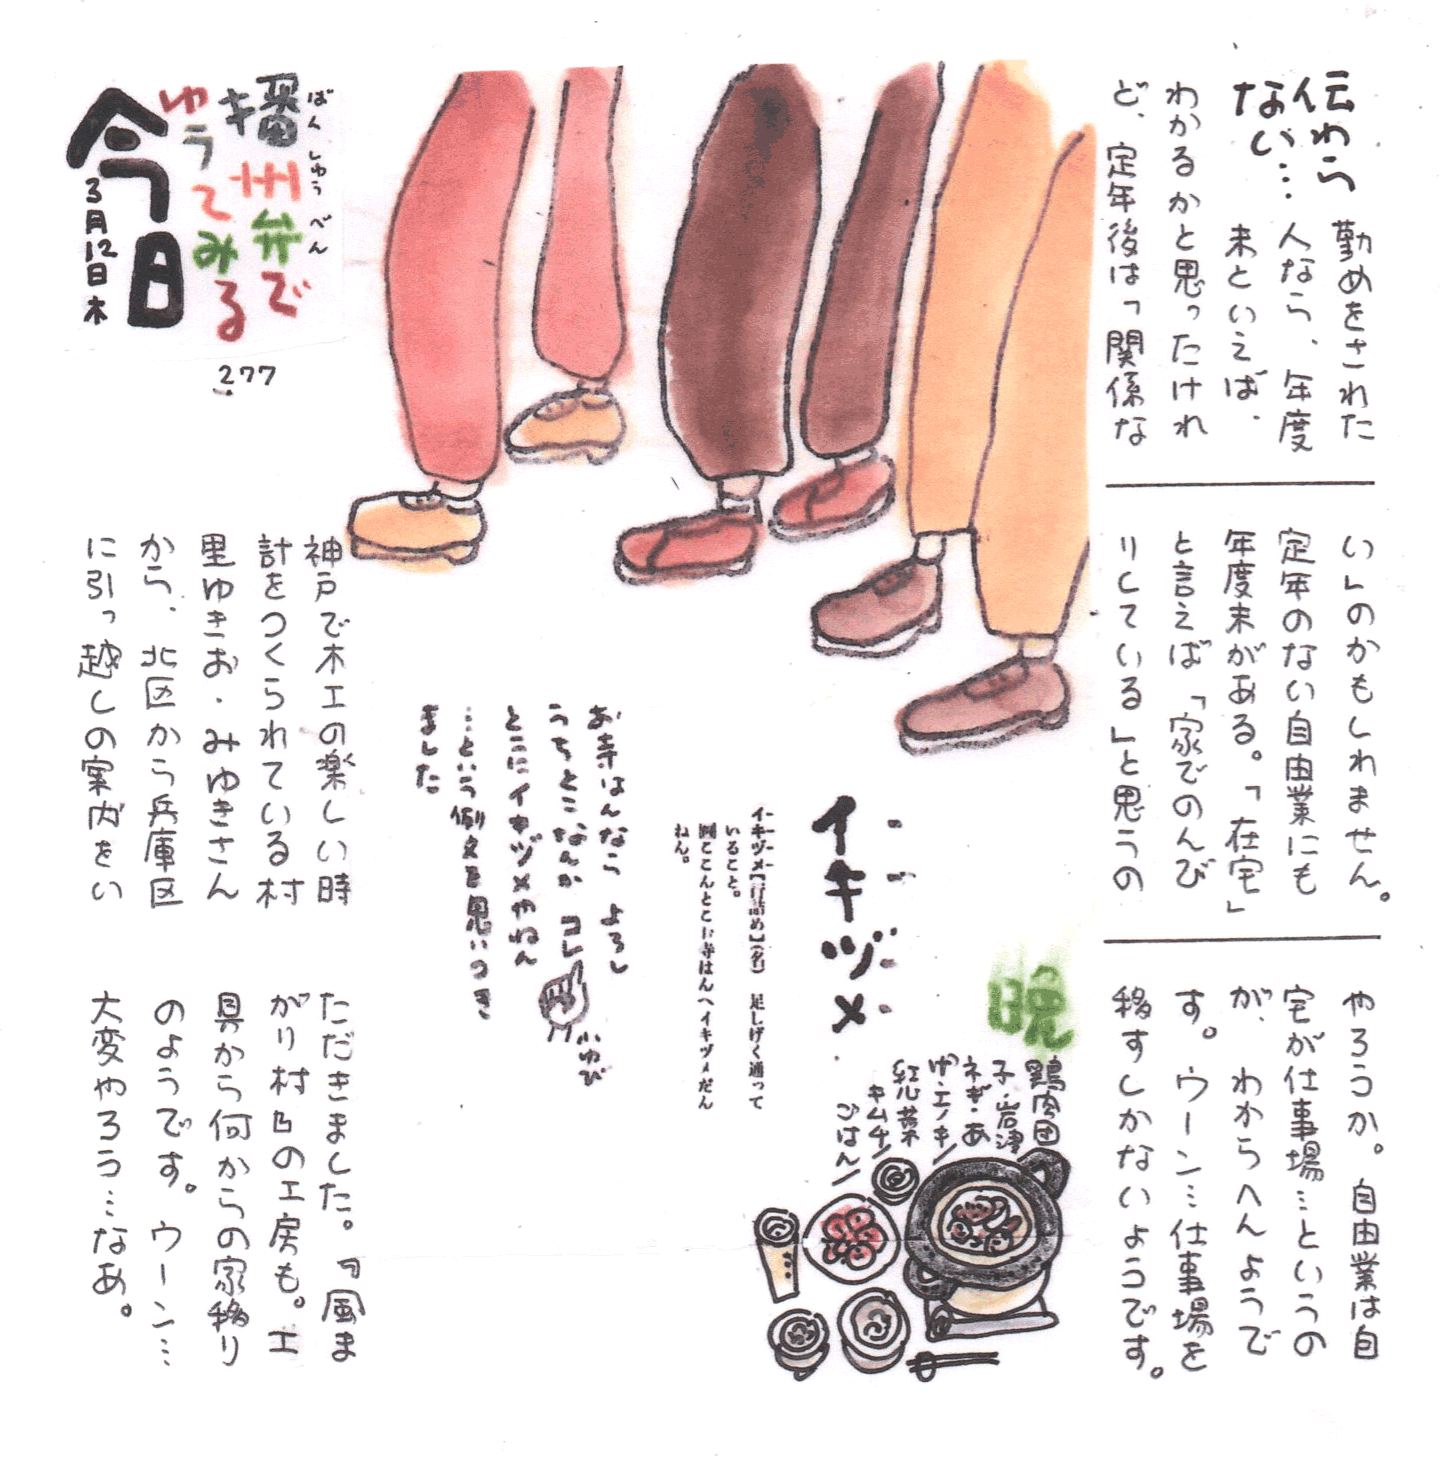 伝わら
ない…
勤めをされた
人なら、年度
末といえば、
わかるかと思ったけれ
ど、定年後は「関係な
い」のかもしれません。
定年のない自由業にも
年度末がある。「在宅」
と言えば「家でのんび
りしている」と思うの
やろうか。自由業は自
宅が仕事場…というの
が、わわらへんようで
す。ウーン…仕事場を
移すしかないようです。
ばんしゅうべん
播州弁で
ゆうてみる
今日
3月12日木
277
イキヅメ
イキヅメ【行詰め】(名) 足しげく通って
いること。
例ここんとこお寺はんへイキヅメだん
ねん。
お寺はんなら よろし
うちとこ、なんか コレ
とこにイキヅメやねん
…という例文を思いつき
ました
小ゆび
晩
鶏肉団
子・岩津
ネギ・あ
げ・エノキ
紅芯菜
キムチ
ごはん
神戸で木工の楽しい時
計をつくられている村
里ゆきお・みゆきさん
から、北区から兵庫区
に引っ越しの案内をい
ただきました。『風ま
がり村』の工房も。工
具から何からの家移り
のようです。ウーン…
大変やろう…なあ。